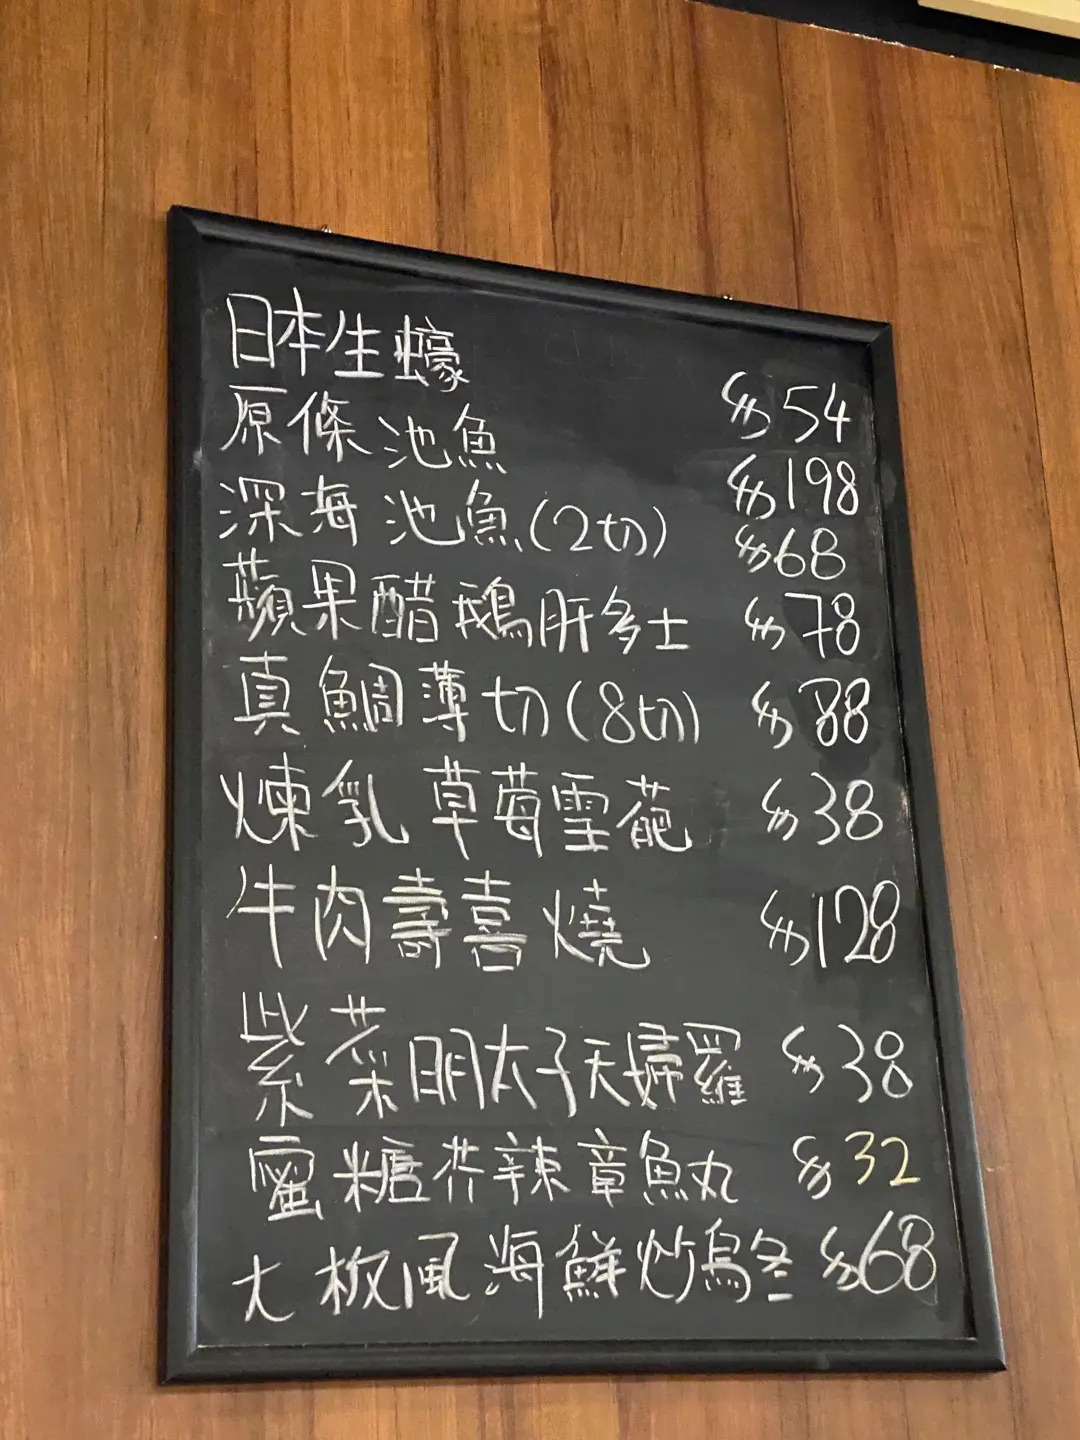 日本生蠔 $54
原條池魚 $198
深海池魚(2切) $68
蘋果醋鵝肝多士 $78
真鯛薄切(8切) $88
煉乳草莓雪葩 $38
牛肉壽喜燒 $128
紫菜明太子天婦羅 $38
蜜糖芥辣章魚丸 $32
大板風海鮮炒烏冬 $68